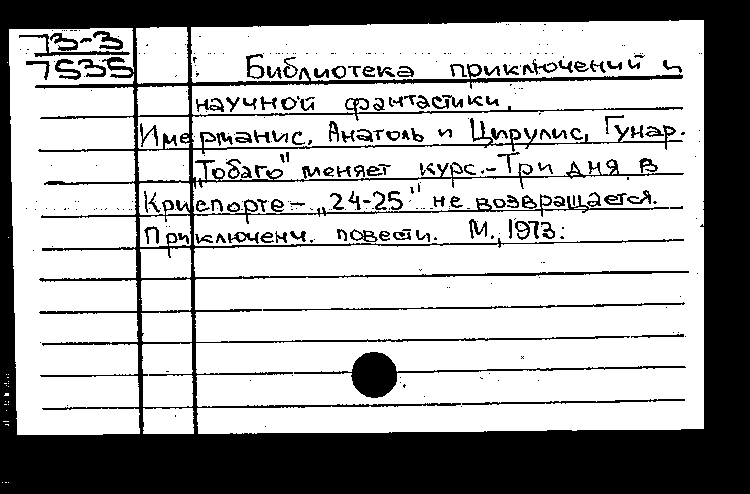 73-3
7535
Библиотека приключений и
научной фантастики.
Имерманис, Анатоль и Цирулис, Гунар.
„Тобаго" меняет курс.-Три дня в
Криспорте-„24-25" не возвращается.
Приключенч. повести. М., 1973.